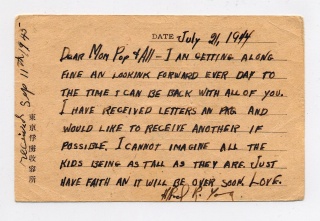 DATE July 21, 1944
DEAR MOM POP & ALL - I AM GETTING ALONG
FINE AN LOOKINK FORWARD EVER DAY TO
THE TIME I CAN BE BACK WITH ALL OF YOU.
I HAVE RECEIVED LETTERS AN PKG AND
WOULD LIKE TO RECEIVE ANOTHEIR IF
POSSIBLE. I CANNOT IMAGINE ALL THE
KIDS BEING AS TALL AS THEY ARE. JUST
HAVE FAITH AN IT WILL BE OVER SOON. LOVE.
R.
received Sep. 11th, 1945
東京俘虜収容所